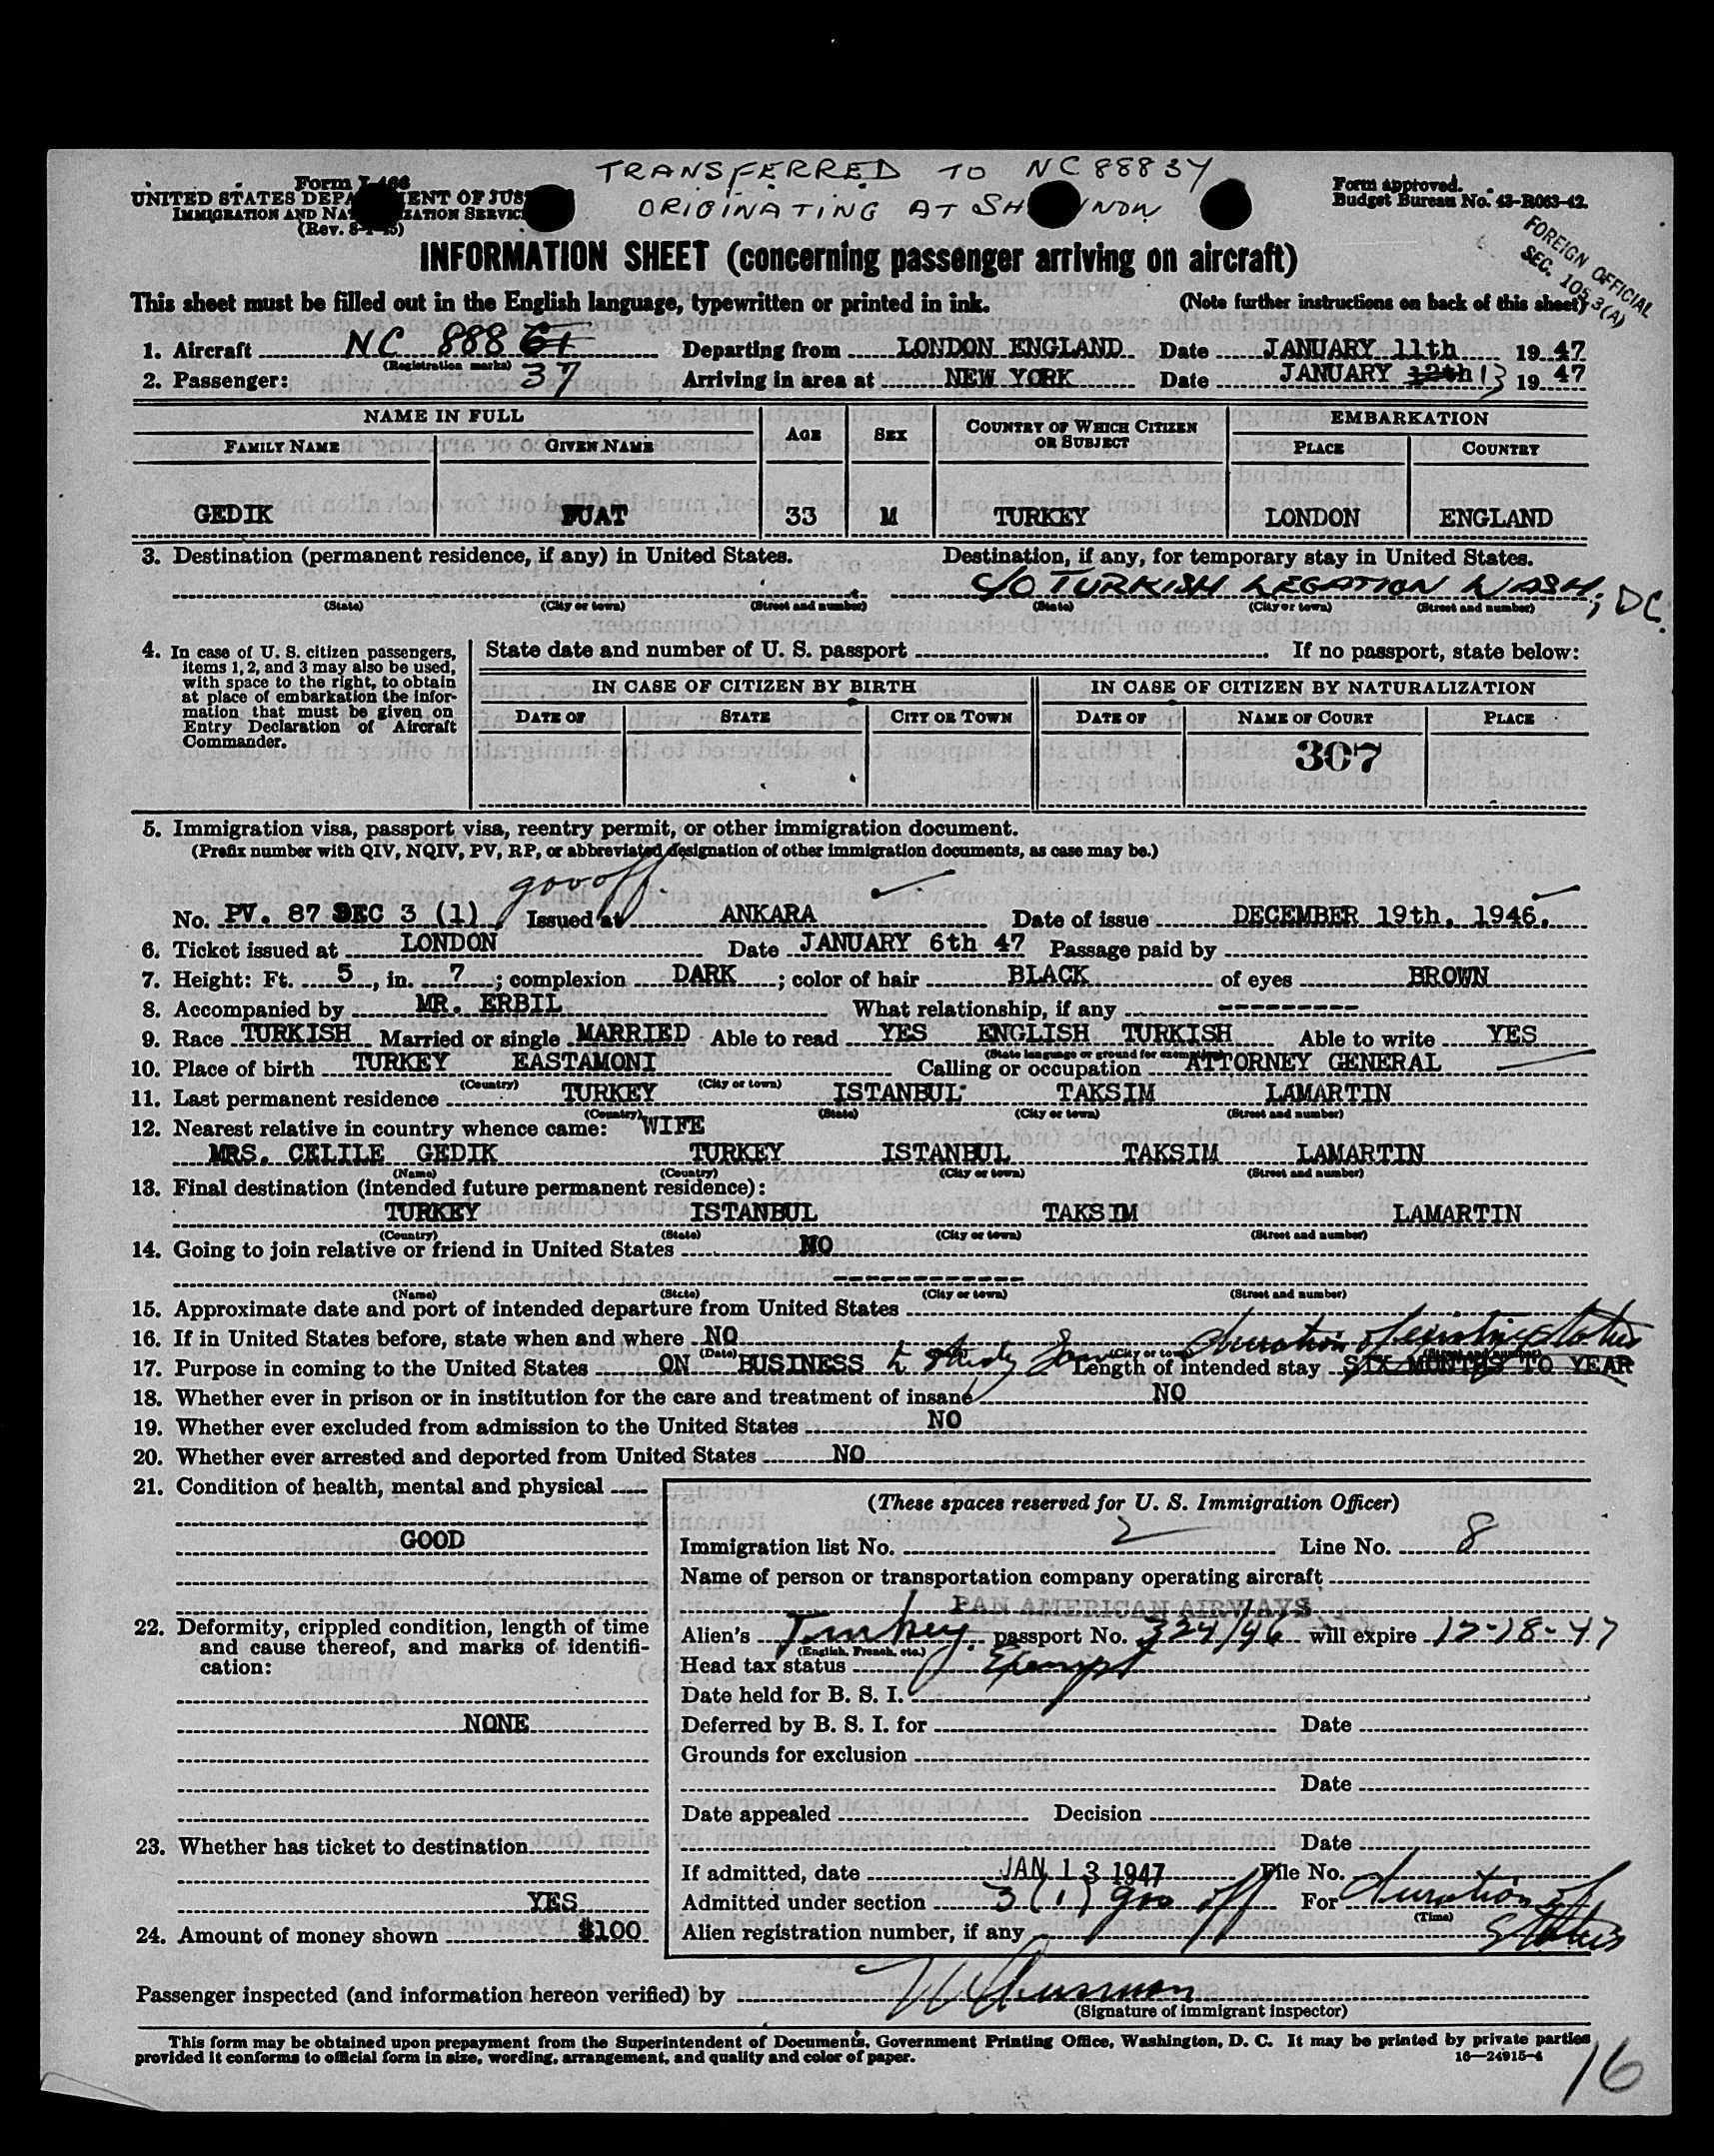 TRANSFERRED TO NC 88837
ORIGINATING AT SH NON
Form I-466
UNITED STATES DEPA ENT OF JUS
IMMIGRATION AND NAT IZATION SERVICE
(Rev. 8-1-45)
Form approved.
Budget Bureau No. 43-R063-42.
FOREIGN OFFICIAL
SEC. 105 3(A)
INFORMATION SHEET (concerning passenger arriving on aircraft)
This sheet must be filled out in the English language, typewritten or printed in ink. (Note further instructions on back of this sheet)
1. Aircraft NC 88861 Departing from LONDON ENGLAND Date JANUARY 11th 1947
(Registration marks) 37
2. Passenger: Arriving in area at NEW YORK Date JANUARY 12th 13 1947
NAME IN FULL AGE SEX COUNTRY OF WHICH CITIZEN OR SUBJECT EMBARKATION
FAMILY NAME GIVEN NAME PLACE COUNTRY
GEDIK FUAT 33 M TURKEY LONDON ENGLAND
3. Destination (permanent residence, if any) in United States. Destination, if any, for temporary stay in United States.
C/O TURKISH LEGATION WASH; DC.
(State) (City or town) (Street and number) (State) (City or town) (Street and number)
4. In case of U. S. citizen passengers, items 1, 2, and 3 may also be used, with space to the right, to obtain at place of embarkation the information that must be given on Entry Declaration of Aircraft Commander.
State date and number of U. S. passport If no passport, state below:
IN CASE OF CITIZEN BY BIRTH IN CASE OF CITIZEN BY NATURALIZATION
DATE OF STATE CITY OR TOWN DATE OF NAME OF COURT PLACE
307
5. Immigration visa, passport visa, reentry permit, or other immigration document.
(Prefix number with QIV, NQIV, PV, RP, or abbreviated designation of other immigration documents, as case may be.)
gov off.
No. PV. 87 DEC 3 (1) Issued at ANKARA Date of issue DECEMBER 19th, 1946.
6. Ticket issued at LONDON Date JANUARY 6th 47 Passage paid by
7. Height: Ft. 5, in. 7; complexion DARK; color of hair BLACK of eyes BROWN
8. Accompanied by MR. ERBIL What relationship, if any ---------
9. Race TURKISH Married or single MARRIED Able to read YES ENGLISH TURKISH Able to write YES
(State language or ground for exemption)
10. Place of birth TURKEY EASTAMONI Calling or occupation ATTORNEY GENERAL
(Country) (City or town)
11. Last permanent residence TURKEY ISTANBUL TAKSIM LAMARTIN
(Country) (State) (City or town) (Street and number)
12. Nearest relative in country whence came: WIFE
MRS. CELILE GEDIK TURKEY ISTANBUL TAKSIM LAMARTIN
(Name) (Country) (City or town) (Street and number)
13. Final destination (intended future permanent residence):
TURKEY ISTANBUL TAKSIM LAMARTIN
(Country) (State) (City or town) (Street and number)
14. Going to join relative or friend in United States NO
------------
(Name) (State) (City or town) (Street and number)
15. Approximate date and port of intended departure from United States
16. If in United States before, state when and where NO duration of existing status
(Date) (City or town) (Street and number)
17. Purpose in coming to the United States ON BUSINESS to study Length of intended stay SIX MONTHS TO YEAR
18. Whether ever in prison or in institution for the care and treatment of insane NO
19. Whether ever excluded from admission to the United States NO
20. Whether ever arrested and deported from United States NO
21. Condition of health, mental and physical
GOOD
22. Deformity, crippled condition, length of time and cause thereof, and marks of identification:
NONE
23. Whether has ticket to destination
YES
24. Amount of money shown $100
(These spaces reserved for U. S. Immigration Officer)
Immigration list No. 2 Line No. 8
Name of person or transportation company operating aircraft
PAN AMERICAN AIRWAYS
Alien's Turkey passport No. 324/46 will expire 12-18-47
(English, French, etc.)
Head tax status Exempt
Date held for B. S. I.
Deferred by B. S. I. for Date
Grounds for exclusion
Date
Date appealed Decision
Date
If admitted, date JAN 13 1947 File No.
Admitted under section 3(1) gov off For duration of status
(Time)
Alien registration number, if any
Passenger inspected (and information hereon verified) by
(Signature of immigrant inspector)
This form may be obtained upon prepayment from the Superintendent of Documents, Government Printing Office, Washington, D. C. It may be printed by private parties
provided it conforms to official form in size, wording, arrangement, and quality and color of paper. 16—24915-4
16